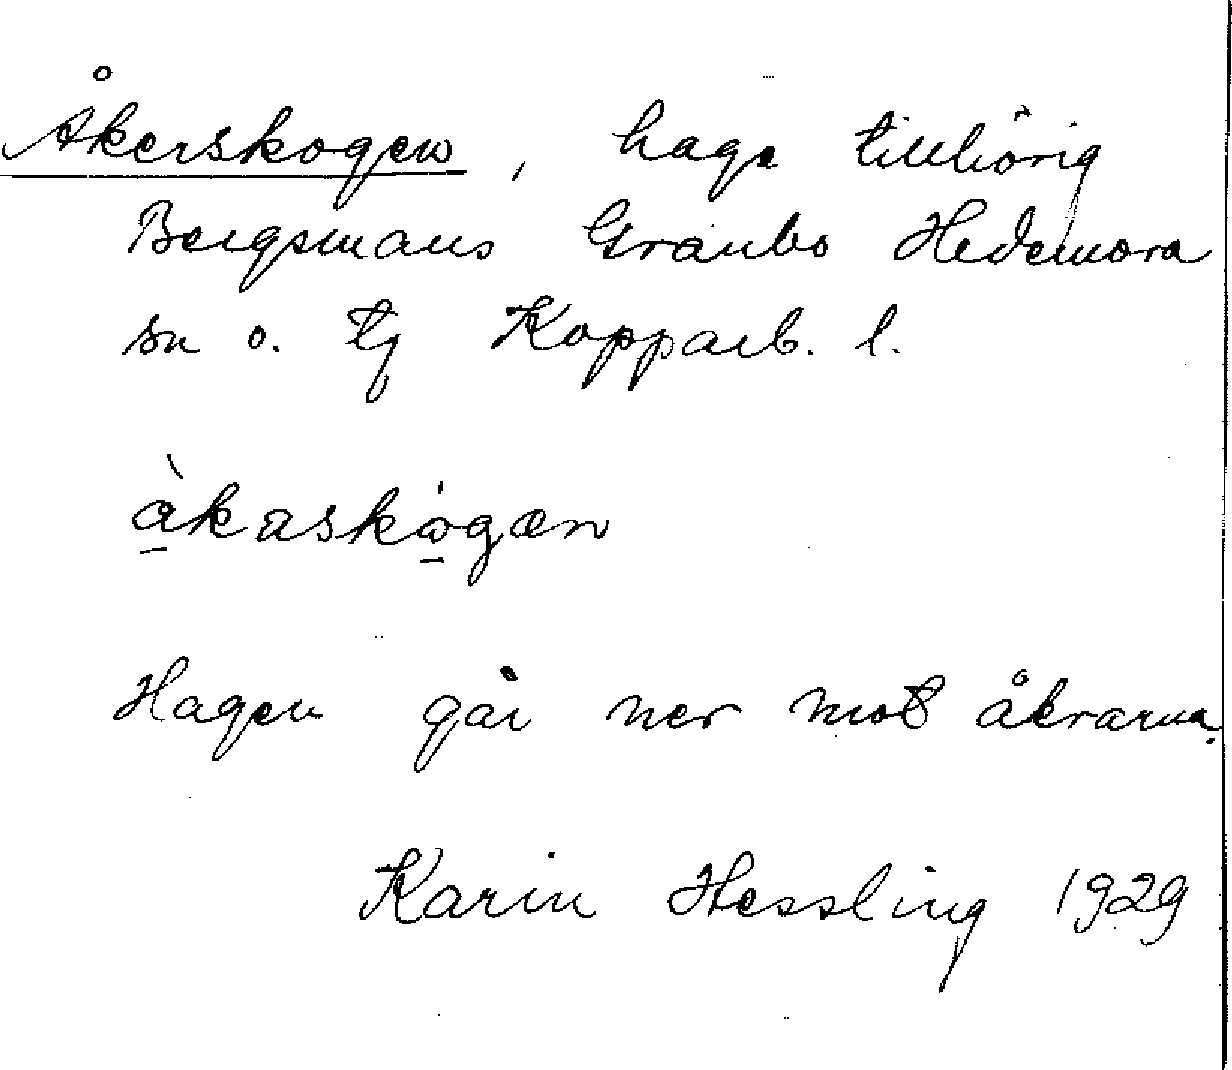 Åkerskogen, hage tillhörig
Bergsmans Granbo Hedemora
sn o. tg Kopparb. l.
àkaskògæn
Hagen går ner mot åkrarna.
Karin Hessling 1929